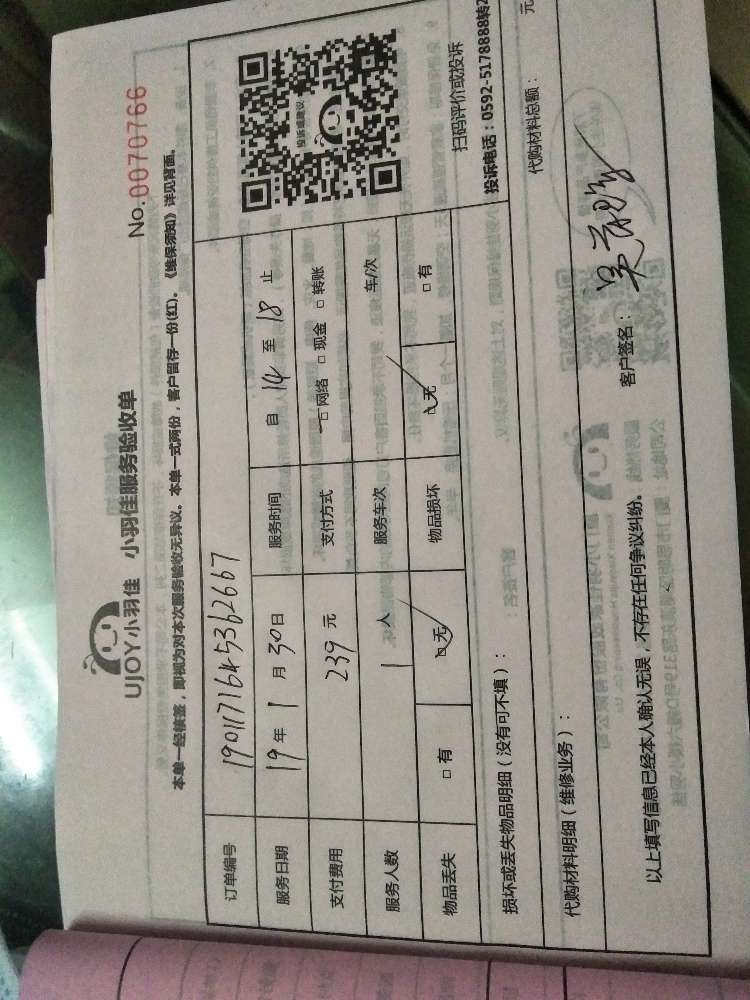 No.0070766
UJOY小羽佳 小羽佳服务验收单
本单一经核签，即视为对本次服务验收无异议。本单一式两份，客户留存一份(红)。《维保须知》详见背面。
订单编号 1901171645362667
投诉或建议
服务日期 19年1月30日 服务时间 自14至18止
支付费用 239元 支付方式 □网络 □现金 □转账
服务人数 1人 服务车次 车/次
物品丢失 □有 □无 物品损坏 □无 □有
扫码评价或投诉
投诉电话：0592-5178888转2
损坏或丢失物品明细（没有可不填）：
代购材料明细（维修业务）： 代购材料总额： 元
以上填写信息已经本人确认无误，不存在任何争议纠纷。 客户签名：